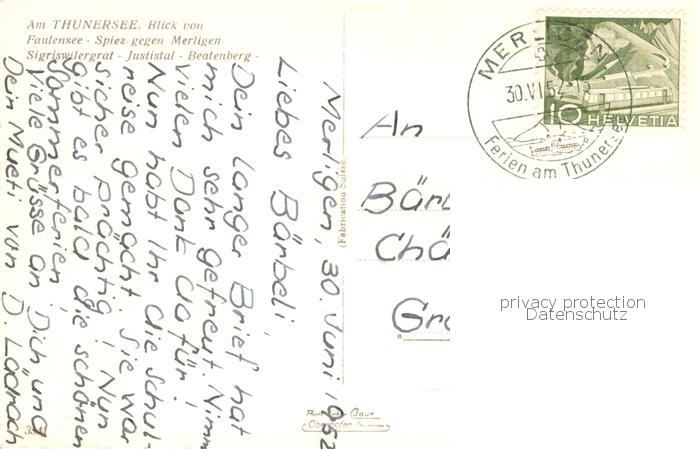 Am THUNERSEE. Blick von
Faulensee - Spiez gegen Merligen
Sigriswilergrat - Justistal - Beatenberg -
Merligen, 30. Juni 1952
Liebes Bärbeli,
Dein langer Brief hat
mich sehr gefreut. Nimm
Vielen Dank dafür!
Nun habt Ihr die Schul-
reise gemacht. Sie war
sicher prächtig! Nun
gibt es bald die schönen
Sommerferien.
Viele Grüsse an Dich und
Dein Mueti von D. Lädrach
(Fabrication Suisse)
An
Bärb
Chä
Gro
MERLIGEN
30.VI.52-15
Ferien am Thunersee
10 HELVETIA
privacy protection
Datenschutz
Gaur
Oberhofen